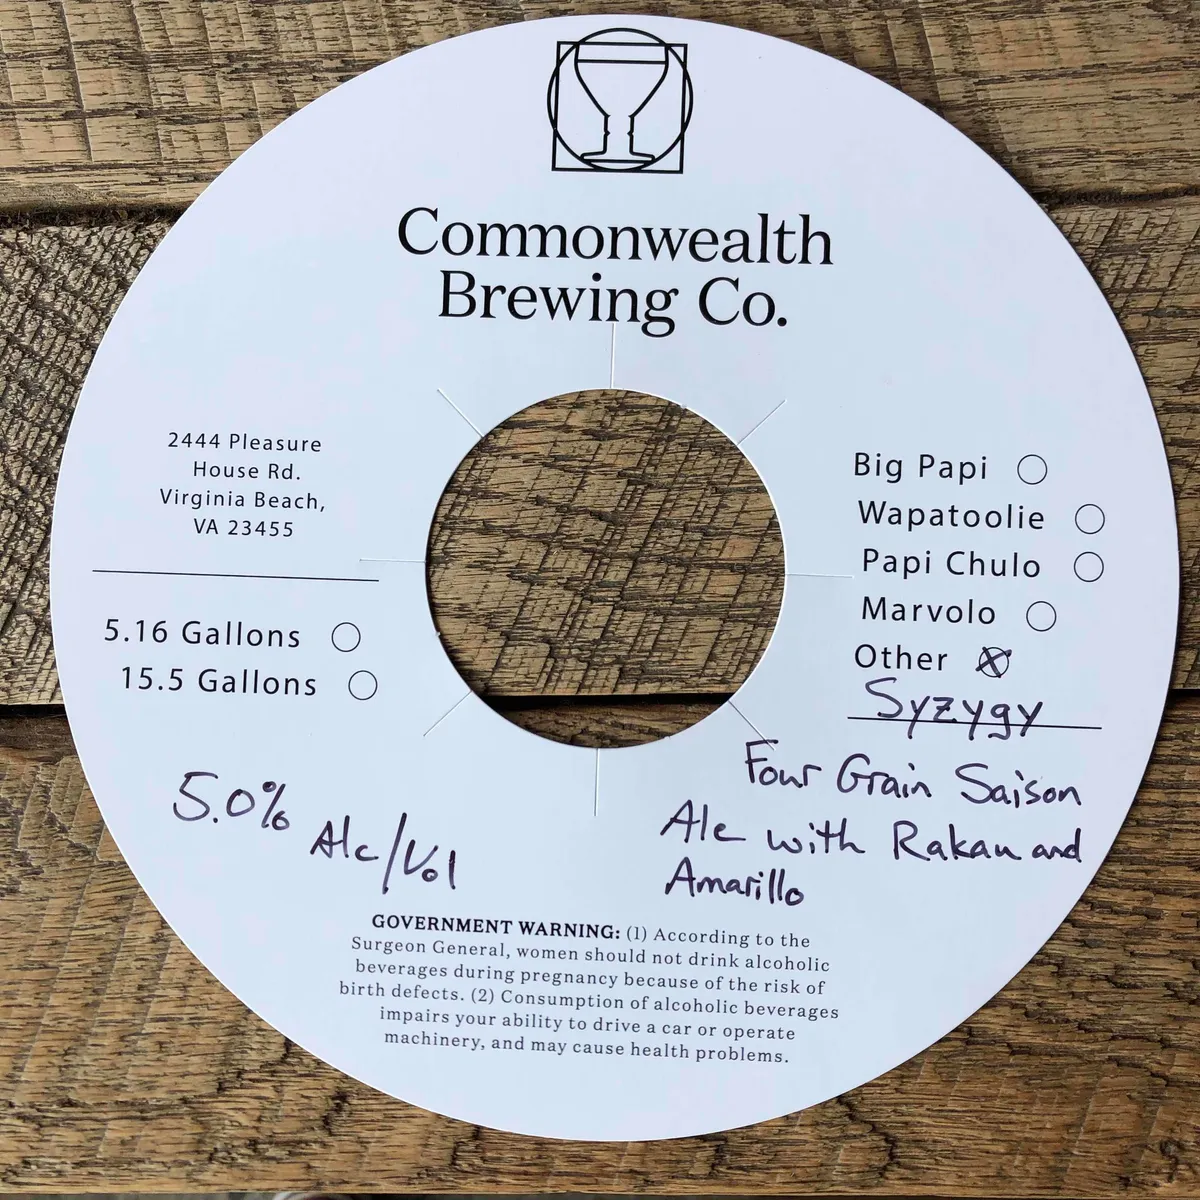 Commonwealth
Brewing Co.
2444 Pleasure
House Rd.
Virginia Beach,
VA 23455
5.16 Gallons
15.5 Gallons
Big Papi
Wapatoolie
Papi Chulo
Marvolo
Other
Syzygy
Four Grain Saison
Ale with Rakau and
Amarillo
5.0% Alc/Vol
GOVERNMENT WARNING: (1) According to the
Surgeon General, women should not drink alcoholic
beverages during pregnancy because of the risk of
birth defects. (2) Consumption of alcoholic beverages
impairs your ability to drive a car or operate
machinery, and may cause health problems.